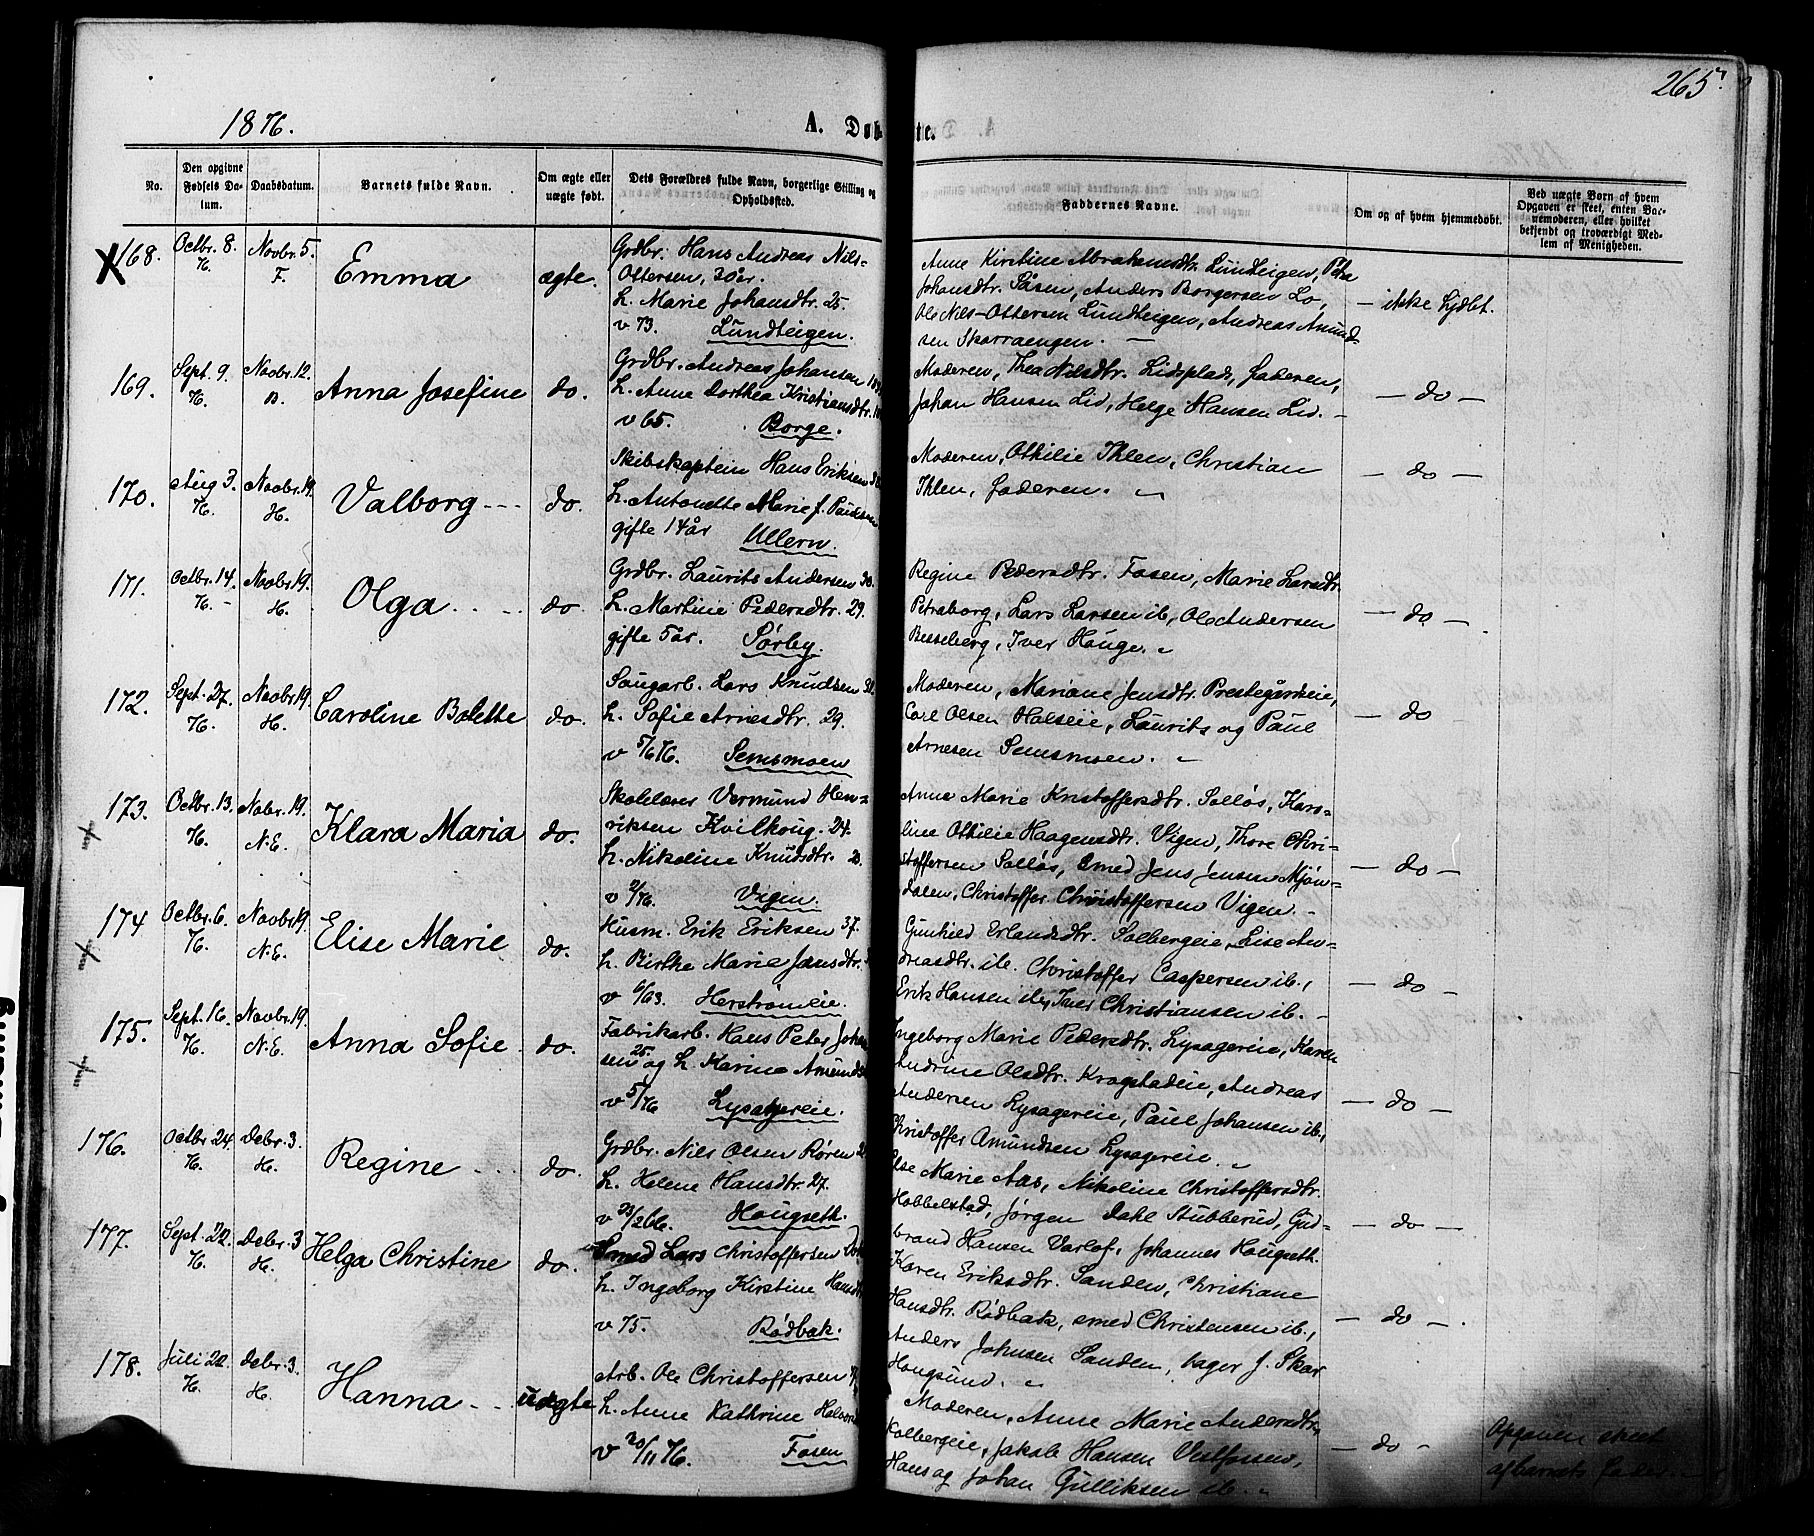 265
1876.
A. Døb te.
No.
Den opgivne Fødsels Datum.
Daabsdatum.
Barnets fulde Navn.
Om ægte eller uægte født.
Dets Forældres fulde Navn, borgerlige Stilling og Opholdssted.
Faddernes Navne.
Om og af hvem hjemmedøbt.
Ved uægte Børn af hvem Opgaven er skeet, enten Barnemoderen, eller hvilket bekjendt og troværdigt Medlem af Menigheden.
168. Octbr. 8. H. Novbr. 5. F. Emma ægte.
Grdbr. Hans Andreas Nils-
Ottersen, 30 år.
h. Marie Johansdtr. 25.
v 73. Lundteigen.
Anne Kirstine Abrahamsdtr. Lundteigen,
Johansdtr. Anders Borgersen Lo,
Ole Nils-Ottersen Lundteigen, Andreas Amund-
sen Skarraengen.
- ikke hjdbt.
169. Sept. 9. H. Novbr. 12. B. Anna Josefine do.
Grdbr. Andreas Johansen
h. Anne Dorthea Kristiansdtr.
v 65. Borge.
Moderen, Thea Nilsdtr. Lidsplads, faderen,
Johan Hansen Lid, Helge Hansen Lid. -
- do -
170. Aug 3. H. Novbr. 19. H. Valborg --- do.
Skibskaptein Hans Eriksen
h. Antonette Marie f. Paulsen
gifte 14 år Ullern.
Moderen, Othilie Ihlen, Christian
Ihlen, faderen.
- do -
171. Octbr. 14. H. Novbr. 19. H. Olga do
Grdbr. Laurits Andersen 30.
h. Martine Pedersdtr. 29.
gifte 5 år. Sørby.
Regine Pedersdtr. Fosen, Marie Larsdtr.
Petraborg, Lars Larsen ib, Ole Andersen
Besseberg, Iver Houge.
- do -
172. Sept. 27. H. Novbr. 19. H. Caroline Bolette do.
Saugarb. Lars Knudsen
h. Sofie Arnesdtr. 29.
v 5/6 76. Semsmoen
Moderen, Mariane Jensdtr. Prestegårdeie,
Carl Olsen Halseie, Laurits og Paul
Arnesen Semsmoen.
- do
173. Octbr. 13. H. Nobr. 19. N.E. Klara Maria do.
Skolelærer Vermund Hen-
riksen Kvilhoug. 24.
h. Nikoline Knudsdtr.
v 2/76. Vigen.
Anne Marie Kristoffersdtr. Solløs, Karo-
line Othilie Haagensdtr. Vigen, Thore Chri-
stoffersen Solløs, Smed Jens Jensen Mjøn-
dalen, Christoffer Christoffersen Vigen. -
- do -
174 Octbr. 6. H. Novbr. 19. N.E. Elise Marie do.
Husm. Erik Eriksen 37.
h. Birthe Marie Jansdtr.
v 6/63. Herstrømeie.
Gunhild Erlandsdtr. Solbergeie, Lise An-
dreasdtr. ib. Christoffer Caspersen ib.,
Erik Hansen ib, Iver Christiansen ib. -
- do -
175. Sept. 16. H. Novbr. 19. N.E. Anna Sofie do.
Fabrikarb. Hans Peter Johan
sen 25. og h. Karine Amunds
v 5/76 Lysagereie.
Ingeborg Marie Pedersdtr. Lysagereie, Karen
Andrine Olsdtr. Krogstadeie, Andreas
Andersen Lysagereie, Paul Johansen ib.,
Christoffer Amundsen Lysagereie.
- do -
176. Octbr. 24. H. Debr. 3. H. Regine do.
Grdbr. Nils Olsen Røren
h. Helene Hansdtr. 27.
v 23/2 66. Hougseth.
Else Marie Aas, Nikoline Christoffersdtr.
Hobbelstad, Jørgen Dahl Stubberud, Gud-
brand Hansen Varlo, Johannes Hougseth.
- do -
177. Sept. 22. H. Debr. 3 H. Helga Christine do.
Smed Lars Christoffersen
h. Ingeborg Kirstine Hansdtr
v 75. Rødbak.
Karen Eriksdtr. Sanden, Christiane
Hansdtr. Rødbak, smed Christensen ib.,
Anders Johnsen Sanden, bager J. Skar
Hougsund.
- do -
178. Juli 22. H. Debr. 3. H. Hanna -- uægte
Arb. Ole Christoffersen
h. Anne Kathrine Halvors
v 20/11 76. Fosen
Moderen, Anne Marie Andersdtr.
Kolbergeie, Jakob Hansen Vestfossen,
Hans og Johan Gulliksen ib.
- do -
Opgaven skeet
af barnets fader